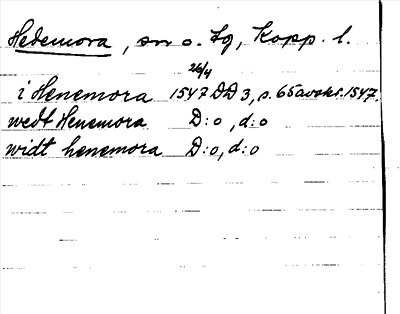 Hedemora, sn o. tg, Kopp. l.
26/4
i Henemora 1547 DD 3, s. 65 avskr. 1547.
wedt Henemora D:o, d:o
widt henemora D:o, d:o